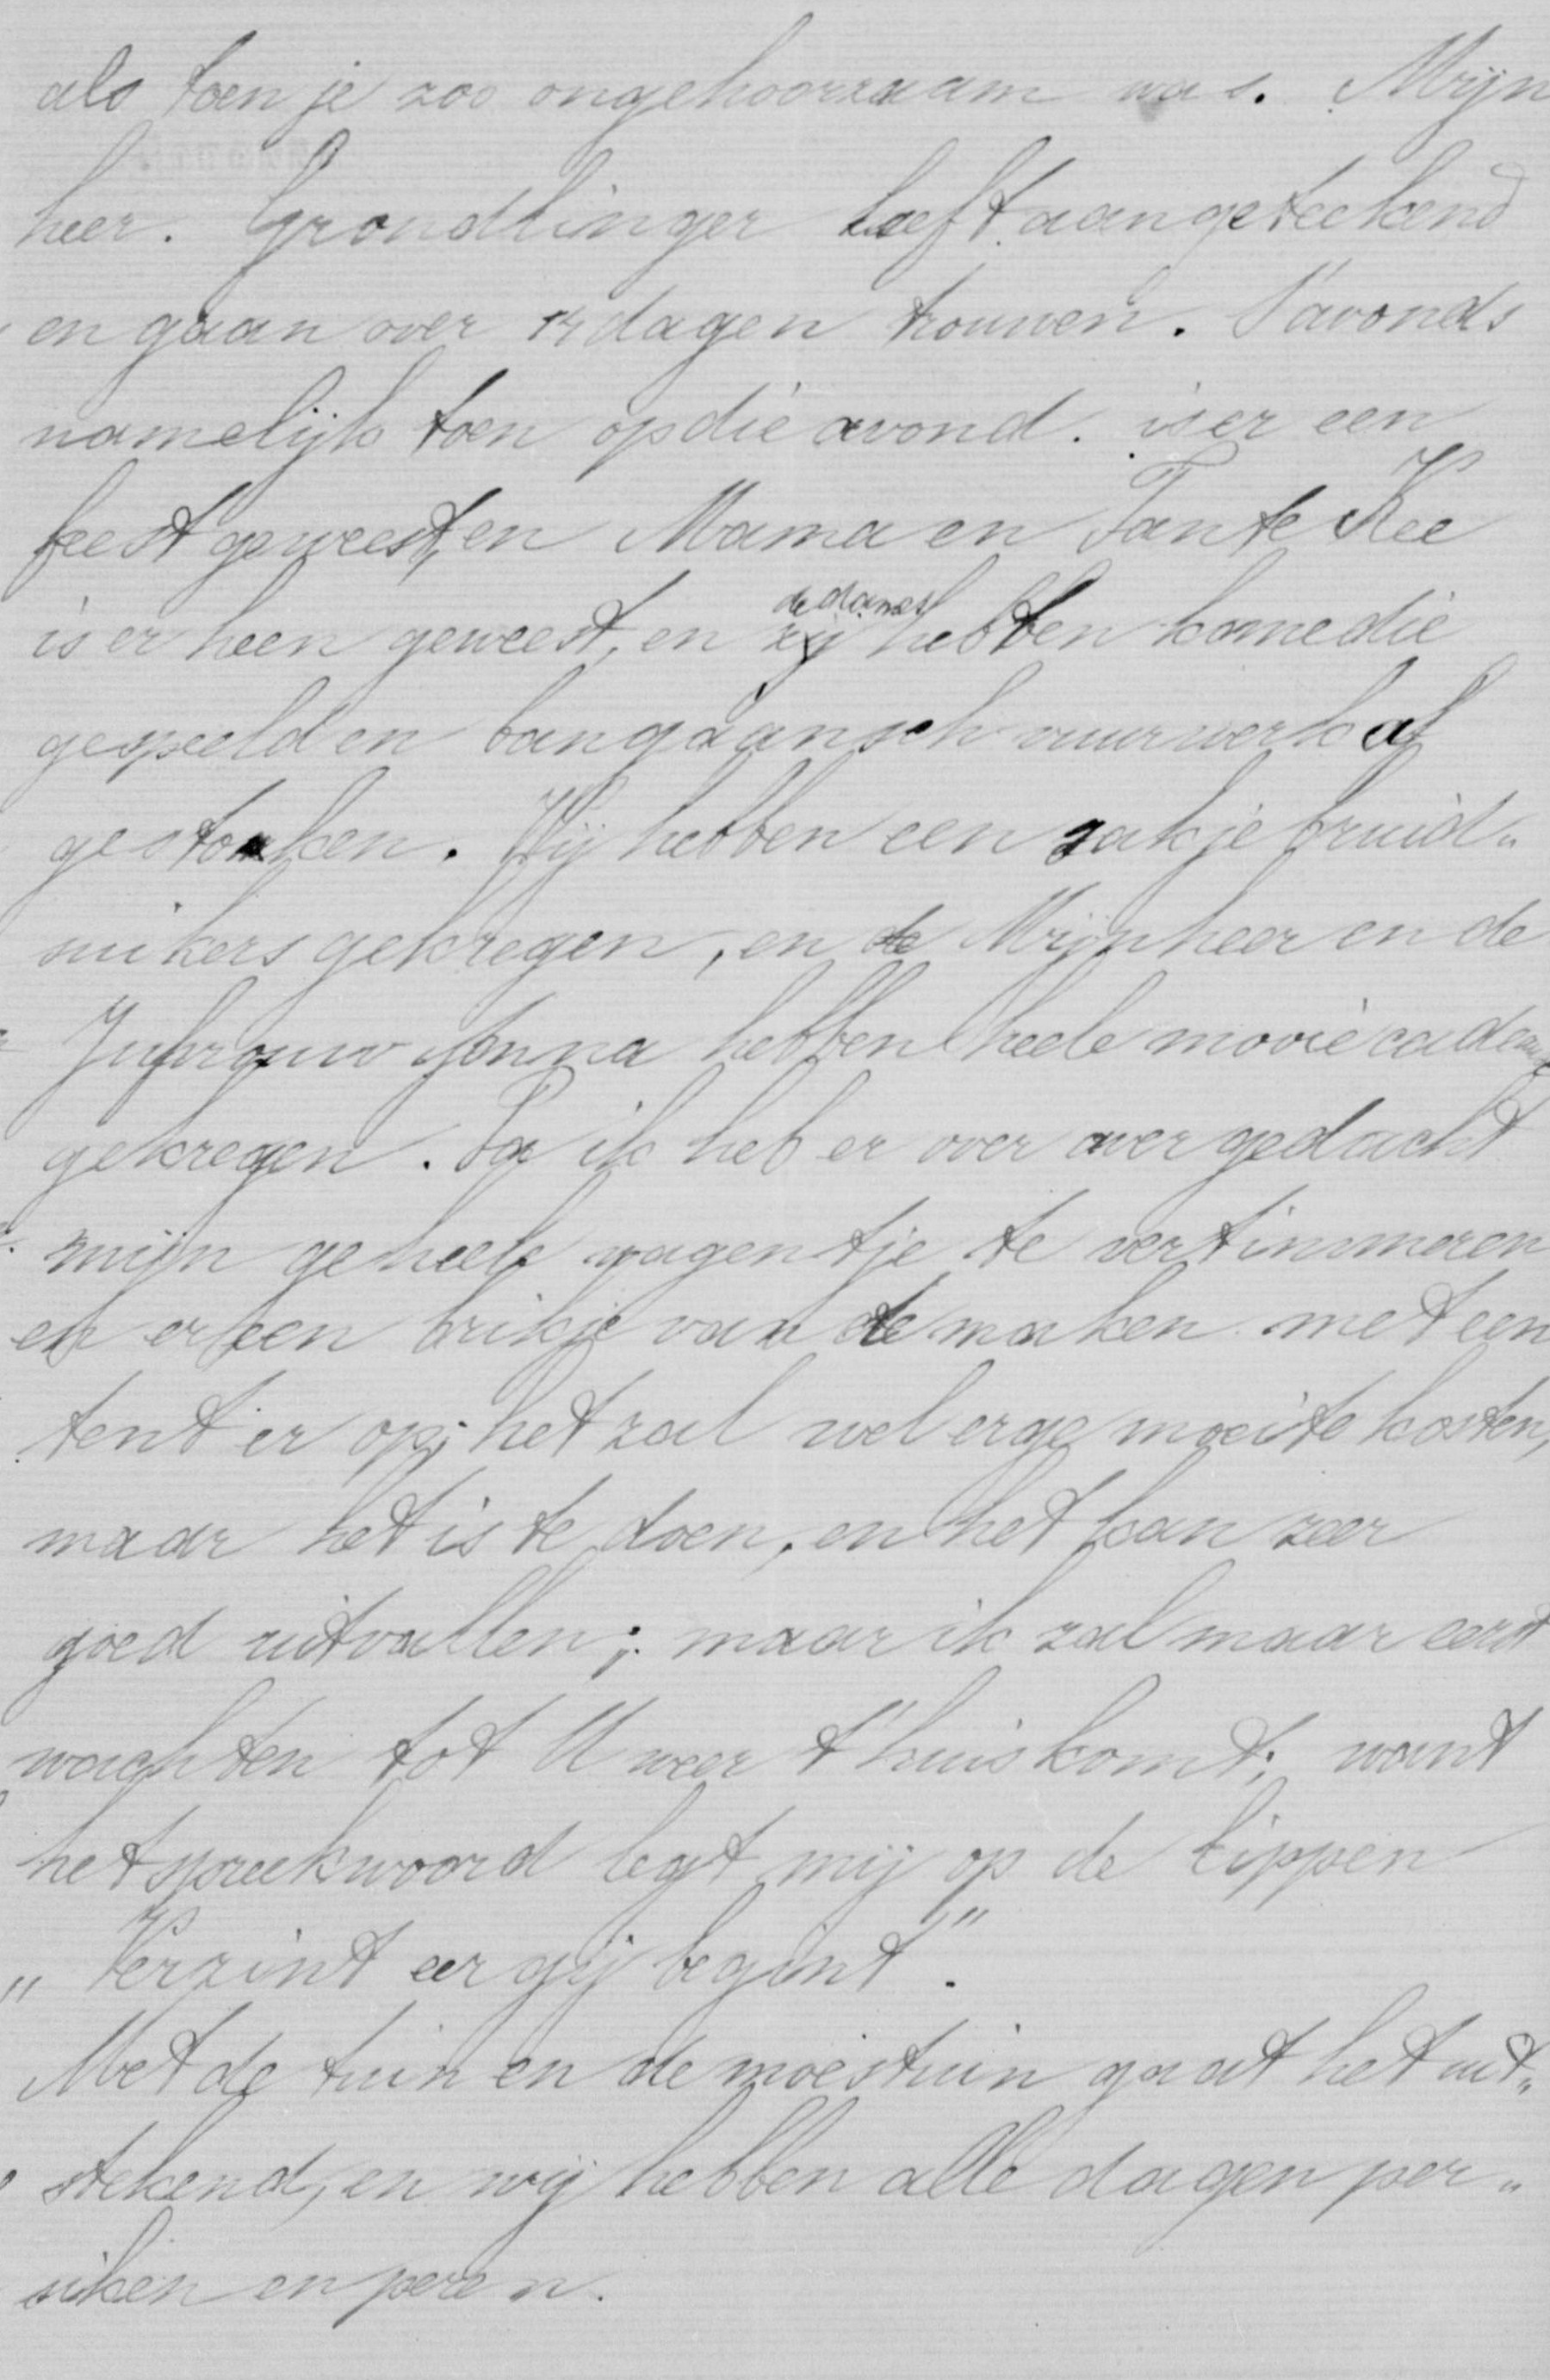 als toen je zoo ongehoorzaam was. Mijn
heer. Grondlinger heeft aangeteekend
en gaan over 14 dagen trouwen. S'avonds
namelijk toen op die avond. is er een
feest geweest, en Mama en Tante Kee
is er heen geweest, en zij de dames hebben komedie
gespeeld en bengaansch vuurwerk af
gestoken. Wij hebben een zakje bruid„
suikers gekregen, en de Mijnheer en de
Jufrouw Anna hebben heele mooie cadeaux
gekregen. Pa ik heb er over over gedacht
mijn geheele wagentje te vertimmeren
en er een brikje van te maken met een
tent er op; het zal wel erge moeite kosten,
maar het is te doen, en het kan zeer
goed uitvallen; maar ik zal maar eerst
wachten tot U weer t'huis komt; want
het spreekwoord legt mij op de lippen
„Verzint eer gij begint".
Met de tuin en de moestuin gaat het uit„
stekend, en wij hebben alle dagen per„
siken en peren.